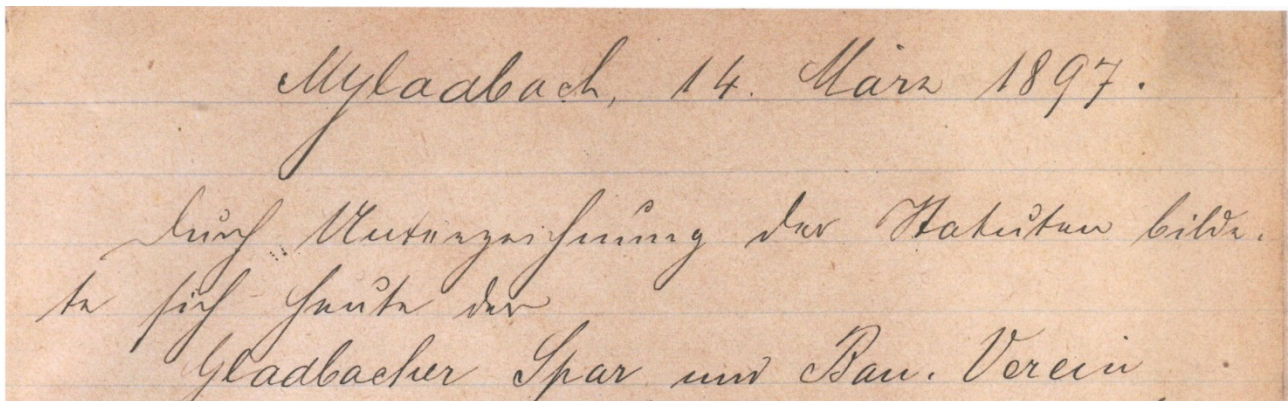 MGladbach, 14. März 1897.
Durch Unterzeichnung der Statuten bilde-
te sich heute der
Gladbacher Spar und Bau-Verein